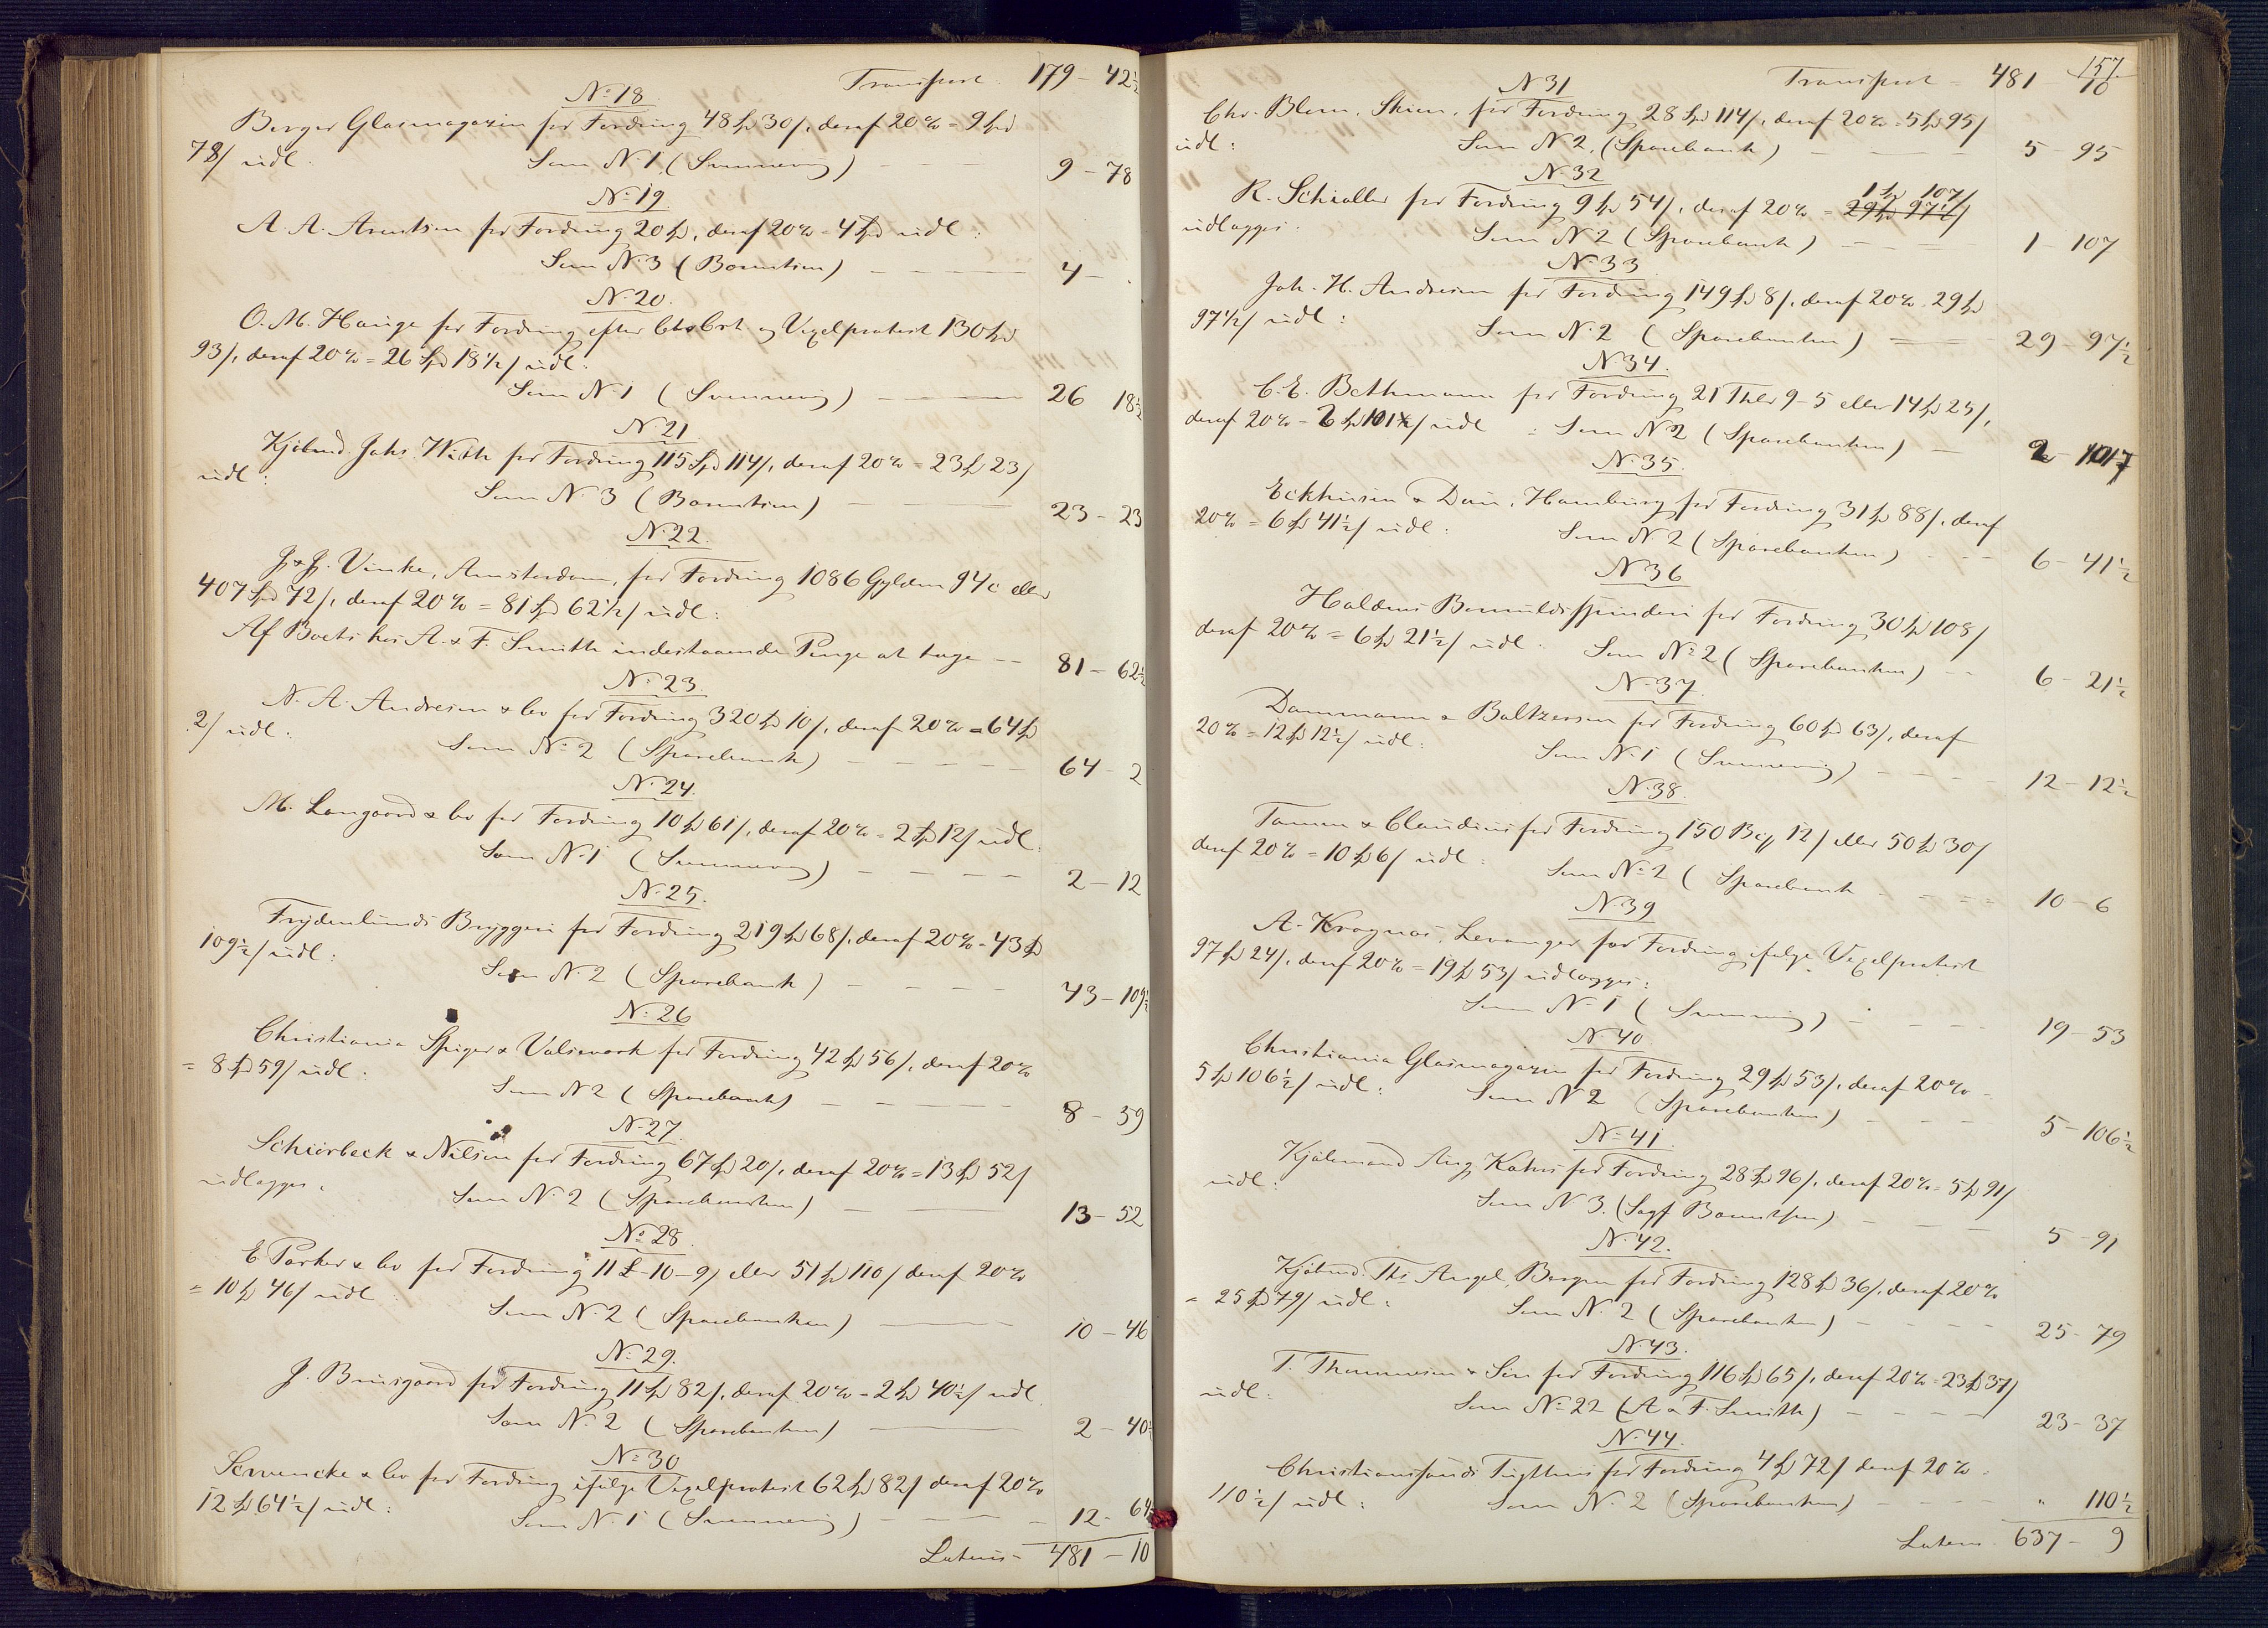 Transport 179 - 42½
No 18.
Berger Glasmagazin for Fordring 48 Spd 30/, deraf 20% = 9 Spd
78/ udl:
Som No 1 (Svinnerig) 9 - 78
No 19.
A. A. Arentsen for Fordring 20 Spd, deraf 20% = 4 Spd udl:
Som No 3 (Berentsen) 4 -
No 20.
O. M. Hauge for Fordring efter og Vexelprotest 130 Spd
93/, deraf 20% = 26 Spd 18½/ udl:
Som No 1 (Svinnerig) 26 18½
No 21
Kjøbmd. Johs With for Fordring 115 Spd 114/, deraf 20% = 23 Spd 23/
udl:
Som No 3 (Berentsen) 23 - 23
No 22.
J & J. Vinke, Amsterdam, for Fordring 1086 Gylden 94c eller
407 Spd 72/, deraf 20% = 81 Spd 62½/ udl:
Af Boets hos A. & F. Smith indestaaende Penge at tage 81 - 62½
No 23.
N. A. Andresen & Co for Fordring 320 Spd 10/, deraf 20% = 64 Spd
2/ udl:
Som No 2 (Sparebank) 64 - 2
No 24.
M. Langaard & Co for Fordring 10 Spd 61/, deraf 20% = 2 Spd 12/ udl.
Som No 1 (Svinnerig) 2 - 12
No 25.
Frydenlunds Bryggeri for Fordring 219 Spd 68/, deraf 20% = 43 Spd
109½/ udl:
Som No 2 (Sparebank) 43 - 109½
No 26
Christiania Spiger & Valseverk for Fordring 42 Spd 56/, deraf 20%
= 8 Spd 59/ udl:
Som No 2 (Sparebank) 8 - 59
No 27.
Schiørbeck & Nilsen for Fordring 67 Spd 20/, deraf 20% = 13 Spd 52/
udlægges:
Som No 2 (Sparebanken) 13 - 52
No 28.
E. Parker & Co for Fordring 11 £ - 10 - 9/ eller 51 Spd 110/ deraf 20%
= 10 Spd 46/ udl:
Som No 2 (Sparebanken) 10 - 46
No 29.
J. Bruusgaard for Fordring 11 Spd 82/, deraf 20% = 2 Spd 40½/ udl.
Som No 2 (Sparebanken) 2 - 40½
No 30
Servencke & Co for Fordring ifølge Vexelprotest 62 Spd 82/ deraf 20%
12 Spd 64½/ udl:
Som No 1 (Svinnerig) 12 - 64½
Lateris - 481 - 10
157
No 31 Transport - 481 10
Chr. Blom, Skien, for Fordring 28 Spd 114/, deraf 20% = 5 Spd 95/
udl:
Som No 2. (Sparebank) 5 - 95
No 32
1 Spd 107/
R. Schiøller for Fordring 9 Spd 54/, deraf 20% = 29 Spd 97½/
udlægges:
Som No 2 (Sparebank) 1 - 107
No 33
Joh. H. Andresen for Fordring 149 Spd 8/, deraf 20% = 29 Spd
97½/ udl:
Som No 2 (Sparebanken) 29 - 97½
No 34.
C. E. Bethmann for Fordring 21 Thlr 9 - 5 eller 14 Spd 25/,
deraf 20% = 2 Spd 101/ udl: Som No 2 (Sparebanken) 2 - 101
No 35.
Eckhusen & Dau, Hamburg for Fordring 31 Spd 88/, deraf
20% = 6 Spd 41½/ udl:
Som No 2 (Sparebanken) 6 - 41½
No 36
Haldens Bomuldsspinderi for Fordring 30 Spd 108/
deraf 20% = 6 Spd 21½/ udl: Som No 2 (Sparebanken) 6 - 21½
No 37.
Dammann & Baltzersen for Fordring 60 Spd 63/, deraf
20% = 12 Spd 12½/ udl:
Som No 1 (Svinnerig) 12 - 12½
No 38.
Tamm & Claudius for Fordring 150 12/ eller 50 Spd 30/
deraf 20% = 10 Spd 6/ udl:
Som No 2 (Sparebank 10 - 6
No 39
A. Kragnæs, Levanger for Fordring ifølge Vexelprotest
97 Spd 24/, deraf 20% = 19 Spd 53/ udlægges:
Som No 1 (Svinnerig) 19 - 53
No 40
Christiania Glasmagazin for Fordring 29 Spd 53/, deraf 20%
5 Spd 106½/ udl:
Som No 2 (Sparebanken) 5 - 106½
No 41.
Kjøbmand Aug Kahrs for Fordring 28 Spd 96/, deraf 20% = 5 Spd 91/
udl:
Som No 3. (Sagf Berentsen) 5 - 91
No 42.
Kjøbmd. Ths Angel, Bergen for Fordring 128 Spd 36/, deraf 20%
= 25 Spd 79/ udl:
Som No 2 (Sparebanken) 25 - 79
No 43.
T. Thommesen & Søn for Fordring 116 Spd 65/, deraf 20% = 23 Spd 37/
udl:
Som No 22 (A & F. Smith) 23 - 37
No 44.
Christianssands Tugthus for Fordring 4 Spd 72/ deraf 20% =
110½/ udl:
Som No 2 (Sparebanken) " 110½
Lateris 637 - 9